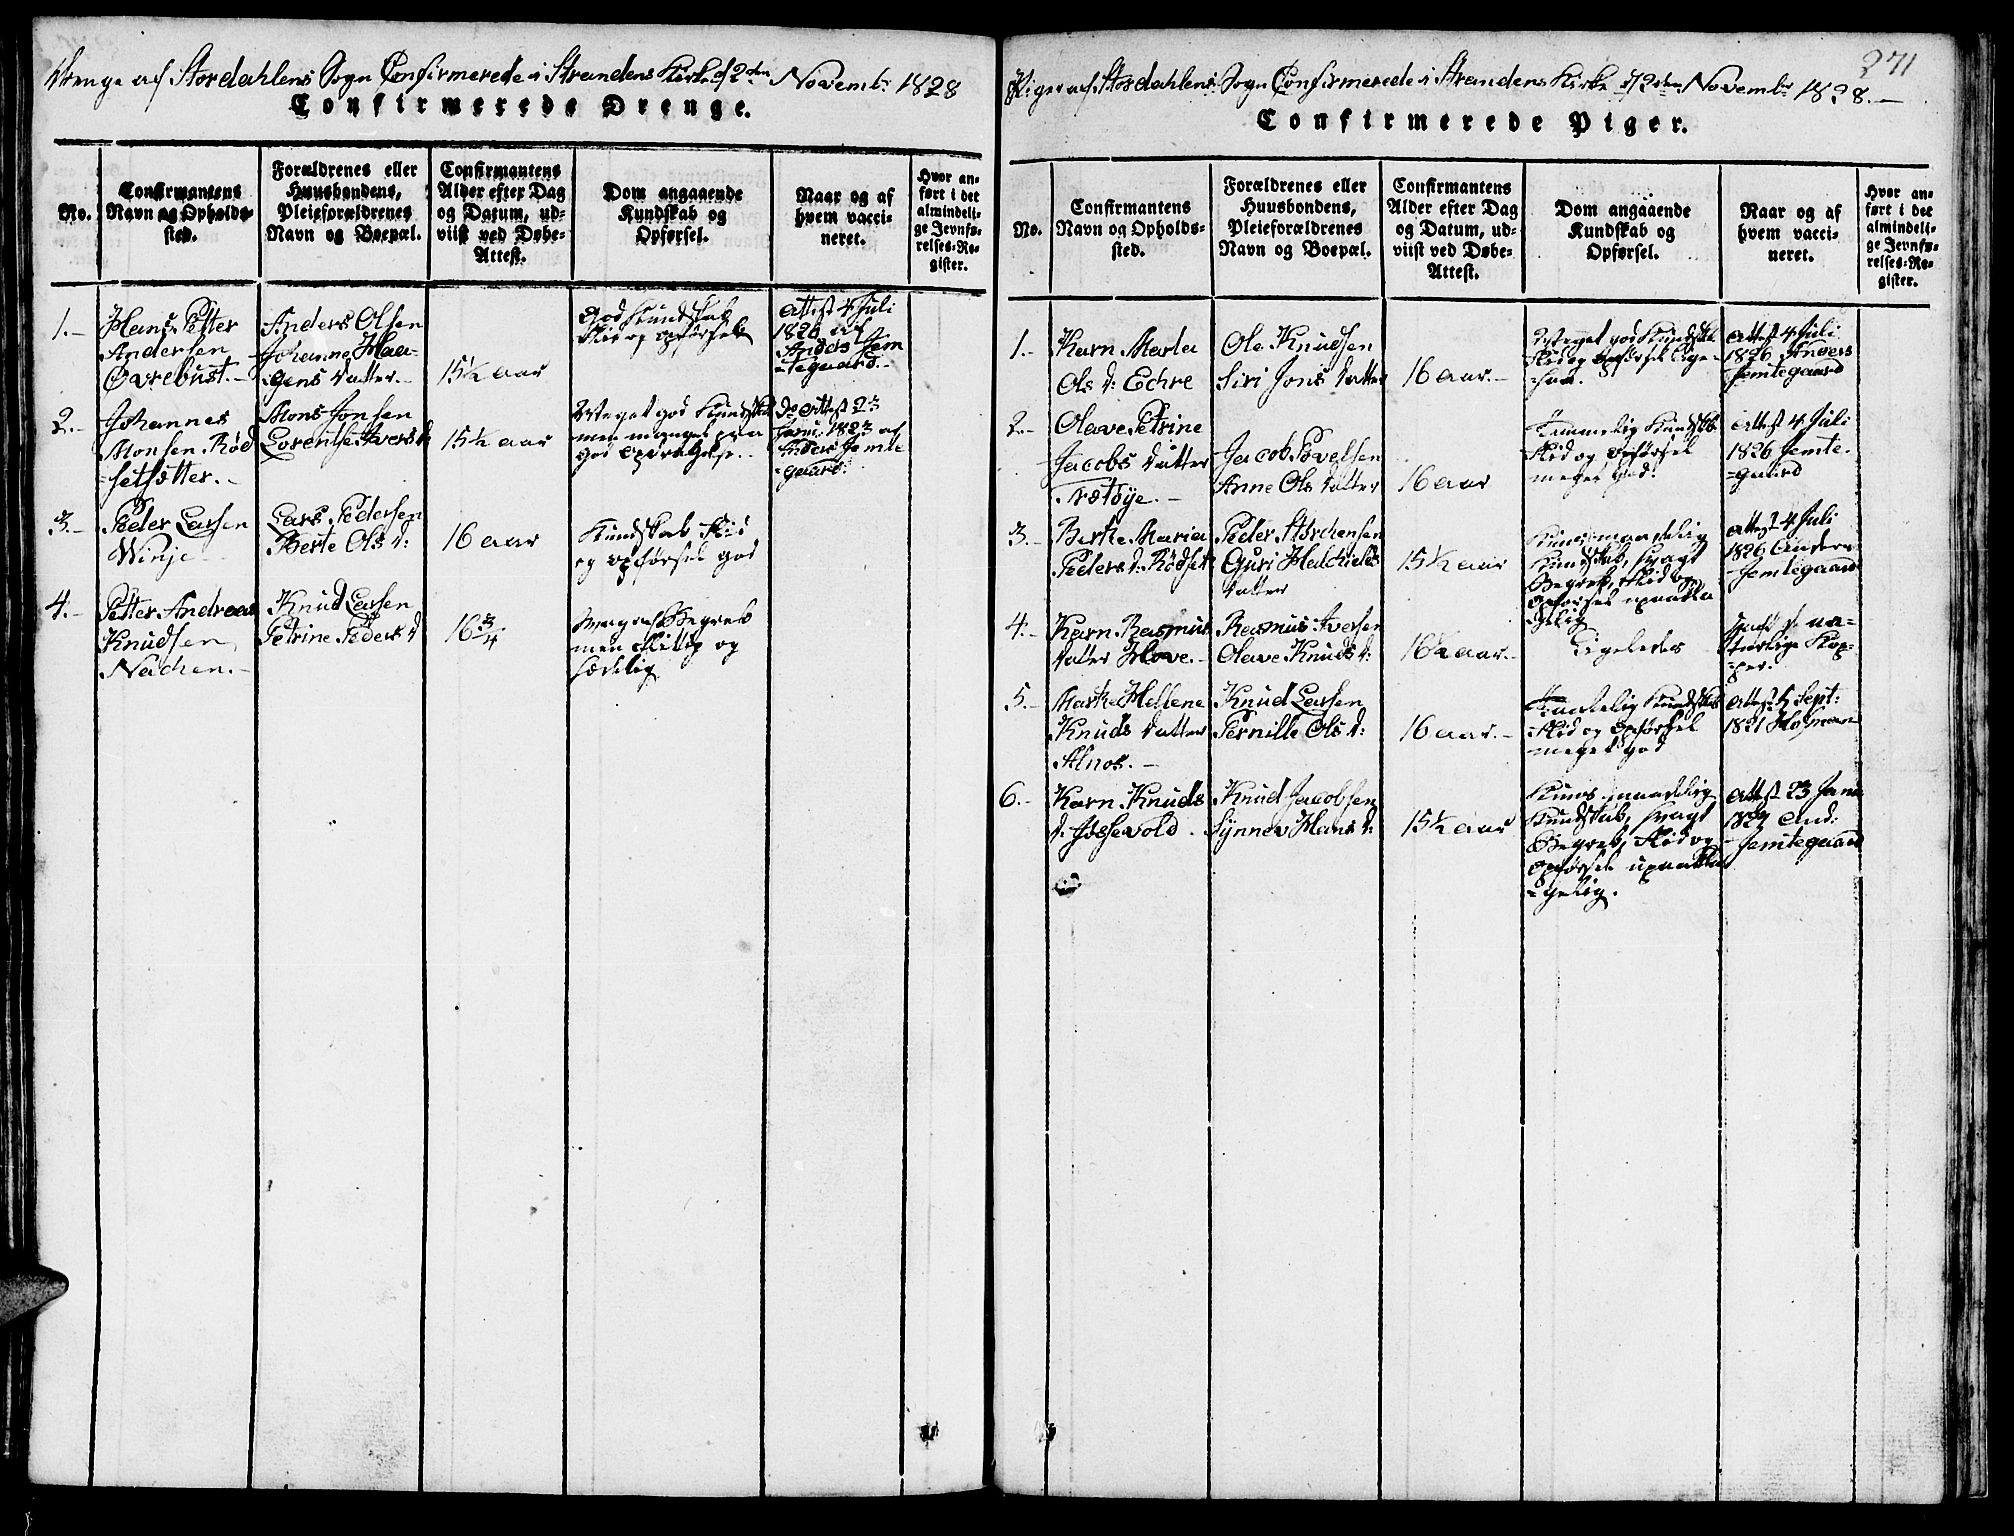 Drenge af Stordahlens Sogn Confirmerede i Strandens Kirke d 2den Novembr 1828
Confirmerede Drenge.
No.
Confirmantens
Navn og Opholds-
sted.
Forældrenes eller
Huusbondens,
Pleieforældrenes
Navn og Boepæl.
Confirmantens
Alder efter Dag
og Datum, ud-
viist ved Døbe-
Attest.
Dom angaaende
Kundskab og
Opførsel.
Naar og af
hvem vacci-
neret.
Hvor an-
ført i det
almindeli-
ge Jevnfø-
relses-Re-
gister.
1.-
Hans Petter
Andersen
Øvrebust.-
Anders Olsen
Johanne Haa-
gens Datter.-
15½ aar
God Kundskab
Flid og opførsel
Attest 4 Juli
1826 af
Anders Jem
-tegaard.-
2.-
Johannes
Monsen Rød
-setsætter.-
Mons Jonsen
Lorentse Ivers d
15½ aar
Meget god Kundskab
men mangel paa
god
Attest
af
Anders Jemte
-gaard.
3.-
Peder Larsen
Winje
Lars Pedersen
Berte Ols d:
16 aar
Kundskab Flid
og opførsel god
4.-
Petter Andreas
Knudsen
Næchen.-
Knud Larsen
Petrine Peders d
16 3/4
Svag af Begreb
men flittig og
sædelig
271
Piger af Stordahlens Sogn Confirmerede i Strandens Kirke d 2den Novembr 1828.-
Confirmerede Piger.
No.
Confirmantens
Navn og Opholds-
sted.
Forældrenes eller
Huusbondens,
Pleieforældrenes
Navn og Boepæl.
Confirmantens
Alder efter Dag
og Datum, ud-
viist ved Døbe-
Attest.
Dom angaaende
Kundskab og
Opførsel.
Naar og af
hvem vacci-
neret.
Hvor an-
ført i det
almindeli-
ge Jevnfø-
relses-Re-
gister.
1.-
Karn Marta
Ols d: Echre
Ole Knudsen
Siri Jons Datter
16 aar.-
Meget god Kundskab
Flid og opførsel lige-
-saa.
Attest 4 Juli
1826 Anders
Jemtegaard
2.-
Olave Petrine
Jacobs Datter
Trætøye.-
Jacob Povelsen
Anne Ols Datter
16 aar
Temmelig Kundskab
Flid og opførsel
meget god.
Attest 4 Juli
1826 Jemte-
-gaard
3.-
Berthe Maria
Peders d: Rødset
Peder Storchensen
Guri Helchiels
Datter
15½ aar
maadelig
Kundskab, svagt
Begreb, Flid og
opførsel upaakla
-gelig
Attest 4 Juli
1826 Anders
Jemtegaard
4.-
Karn Rasmus
Datter Hove.-
Rasmus Iversen
Olave Knuds d:
16½ aar.-
Ligeledes
Havt de na-
-turlige Kop-
-per.
5.-
Marthe Hellene
Knuds Datter
Alnos.-
Knud Larsen
Pernille Ols d:
16 aar.-
Maadelig Kundskab
Flid og opførsel
meget god
Attest Sept:
1821
6.-
Karn Knuds
d: Jdssevold.
Knud Jacobsen
Synnev Hans d:
15½ aar
maadelig
Kundskab, svagt
Begreb, Flid og
opførsel upaakla
-gelig.
Attest 23 Juni
And:
Jemtegaard